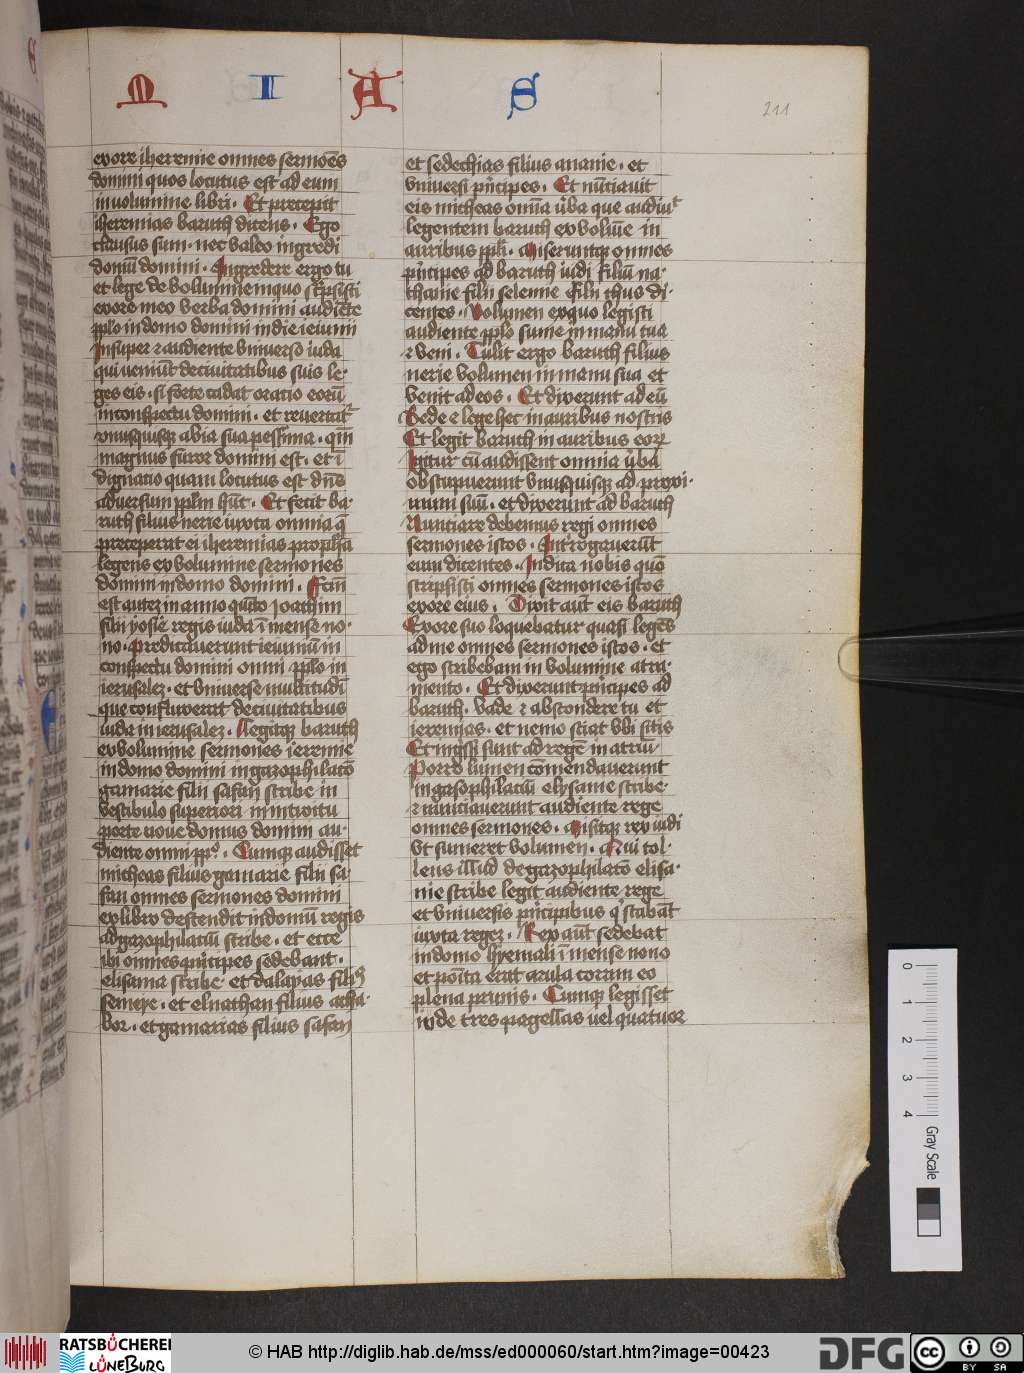 M I A S
211
exore iheremie omnes sermoēs
domini quos locutus est ad eum
in volumine libri · Et precepit
iheremias baruth dicens · Ego
clausus sum · nec valeo ingredi
domū domini · Ingredere ergo tu
et lege de volumine in quo scripsisti
exore meo verba domini audiēte
pplo in domo domini in die ieiunii
Insuper ⁊ audiente vniverso iuda
qui veniūt de civitatibus suis le-
ges eis · si forte cadat oratio eorū
in conspectu domini · et revertat᷑
vnusquisqꝫ a via sua pessima · qm̄
magnus furor domini est · et ī
dignatio quam locutus est dn̄s
adversum pplm hūc · Et fecit ba-
ruth filius nerie iuxta omnia q̄
preceperat ei iheremias propheta
legens ex volumine sermones
domini in domo domini · Fctm̄
est autez in anno quīto Joachim
filii yosie regis iuda ī mense no-
no · predicaverunt ieiuniū in
conspectu domini omni pplo in
ierusalez · et vniverse multitudī
que confluxerat de civitatibus
iuda in ierusalez · Legitqꝫ baruth
ex volumine sermones ieremie
in domo domini in gazophilatō
gamarie filii safan scribe in
vestibulo superiori in introitu
porte nove domus domini au-
diente omni pp̄o · Cumqꝫ audisset
micheas filius gamarie filii sa-
fan omnes sermones domini
ex libro descendit in domū regis
ad gazophilaciū scribe · et ecce
ibi omnes principes sedebant ·
elisama scribe et dalayas filius
semeye · et elnathan filius acha-
bor · et gamarias filius safan
et sedechias filius ananie · et
vniversi pⁱncipes · Et nūtiavit
eis micheas omīa v̓ba que audiv᷑t
legentem baruth ex volūīe in
auribus ppli · Miserunt qꝫ omnes
pⁱncipes ad baruth iudi filiū na-
thanie filii selemie filii thus di-
centes · Volumen ex quo legisti
audiente pplo sume in manu tua
⁊ veni · Tulit ergo baruth filius
nerie volumen in manu sua et
venit ad eos · Et dixerunt ad eū
Sede ⁊ lege hec in auribus nostris
Et legit baruth in auribus eoꝝ
Igitur cū audissent omnia v̓ba
obstupuerunt vnusquisqꝫ ad proxi-
mum suū · et dixerunt ad baruth
Nuntiare debemus regi omnes
sermones istos · Interrogaverūt
eum dicentes · Indica nobis quō
scripsisti omnes sermones istos
ex ore eius · Dixit aūt eis baruth
Exore suo loquebatur quasi legēs
ad me omnes sermones istos · et
ego scribebam in volumine atra-
mento · Et dixerunt pⁱncipes ad
baruth · vade ⁊ abscondere tu et
ieremias · et nemo sciat vbi sitis
Et ingssi sunt ad regē in atriū
Porro lumen cōmendaverunt
in gasophilaciū elysame scribe
⁊ nuntiaverunt audiente rege
omnes sermones · Misitqꝫ rex iudi
vt sumeret volumen · Qui tol-
lens illud de gazophilatō elisa-
nie scribe legit audiente rege
et vniversis pⁱncipibus qⁱ stabāt
iuxta regez · Rex aūt sedebat
in domo hyemali ī mense nono
et poīta erat arula coram eo
plena prunis · Cumqꝫ legisset
iude tres pagellas uel quatuor
0 1 2 3 4
Gray Scale
RATSBÜCHEREI
LÜNEBURG
© HAB http://diglib.hab.de/mss/ed000060/start.htm?image=00423
DFG
cc BY SA